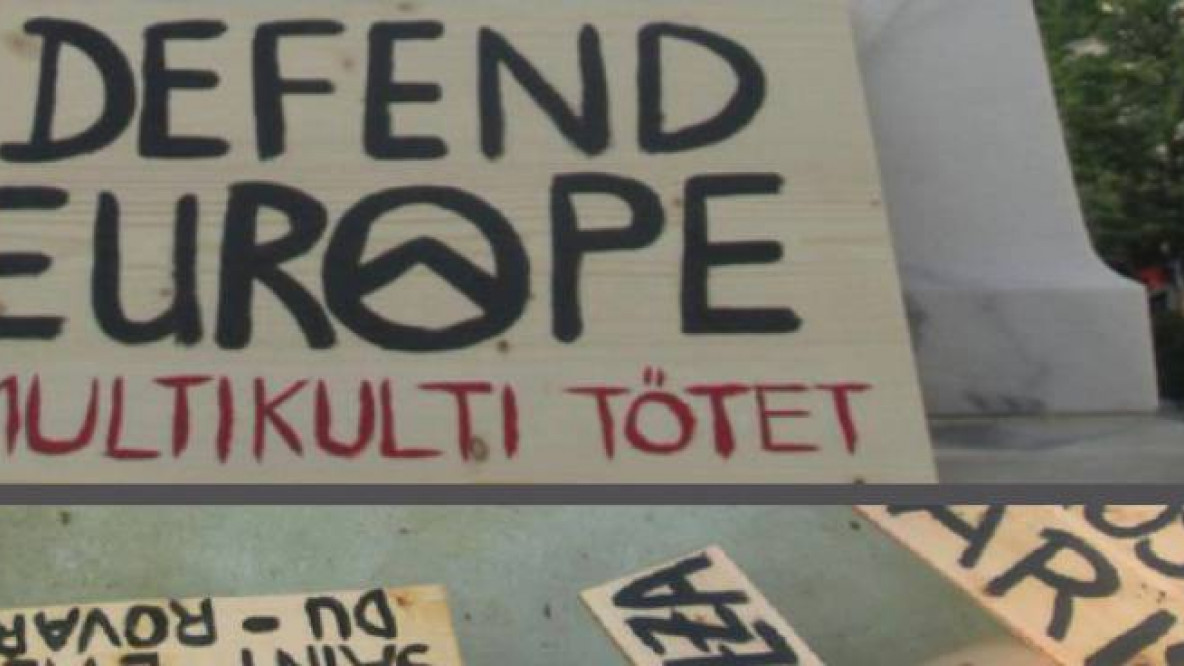 DEFEND
EUROPE
MULTIKULTI TÖTET
DU - ROVAR
SAINT